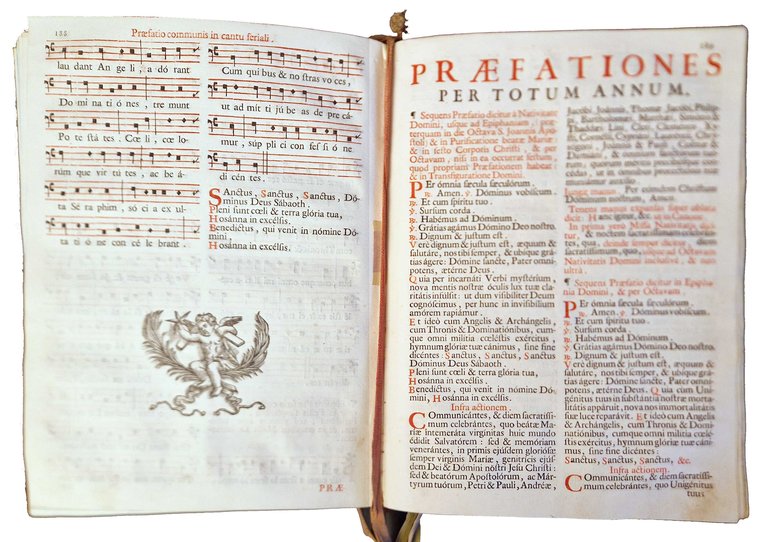 188
Præfatio communis in cantu feriali.
lau dant An ge li, a dó rant
Do mi na ti ó nes, tre munt
Po te stá tes. Cœ li, cœ lo-
rúm que vir tú tes, ac be á-
ta Sé ra phim, só ci a ex ul-
ta ti ó ne con cé le brant.
Cum qui bus & no stras vo ces,
ut ad mit ti jú be as de pre cá-
mur, súp pli ci con fes si ó ne
di cén tes.
Sanctus, Sanctus, Sanctus, Dó-
minus Deus Sábaoth.
Pleni sunt cœli & terra glória tua,
Hosánna in excélsis.
Benedíctus, qui venit in nómine Dó-
mini,
Hosánna in excélsis.
PRÆ
PRÆFATIONES
PER TOTUM ANNUM.
¶ Sequens Præfatio dicitur à Nativitate
Domini, usque ad Epiphaniam, præ-
terquam in die Octava S. Joannis Apo-
stoli: & in Purificatione beatæ Mariæ:
& in festo Corporis Christi, & per
Octavam, nisi in ea occurrat festum,
quod propriam Præfationem habeat:
& in Transfiguratione Domini.
PEr ómnia sæcula sæculórum.
℟. Amen. ℣. Dóminus vobíscum.
℟. Et cum spíritu tuo.
℣. Sursum corda.
℟. Habémus ad Dóminum.
℣. Grátias agámus Dómino Deo nostro.
℟. Dignum & justum est.
Verè dignum & justum est, æquum &
salutáre, nos tibi semper, & ubique grá-
tias ágere: Dómine sancte, Pater omní-
potens, ætérne Deus.
Quia per incarnáti Verbi mystérium,
nova mentis nostræ óculis lux tuæ cla-
ritátis infúlsit: ut dum visibíliter Deum
cognóscimus, per hunc in invisibílium
amórem rapiámur.
Et ídeò cum Angelis & Archángelis,
cum Thronis & Dominatiónibus, cum-
que omni milítia cœléstis exércitus,
hymnum glóriæ tuæ cánimus, sine fine
dicéntes: Sanctus, Sanctus, Sanctus
Dóminus Deus Sábaoth.
Pleni sunt cœli & terra glória tua,
Hosánna in excélsis.
Benedíctus, qui venit in nómine Dó-
mini, Hosánna in excélsis.
Infra actionem.
COmmunicántes, & diem sacratíssi-
mum celebrántes, quo beátæ Ma-
ríæ intemeráta virgínitas huic mundo
édidit Salvatórem: sed & memóriam
venerántes, in primis ejúsdem gloriósæ
semper vírginis Maríæ, genitrícis ejús-
dem Dei & Dómini nostri Jesu Christi:
sed & beatórum Apostolórum, ac Már-
tyrum tuórum, Petri & Pauli, Andréæ,
Jacóbi, Joánnis, Thomæ, Jacóbi, Philíp-
pi, Bartholomæi, Matthæi, Simónis, &
Thaddæi: Lini, Cleti, Cleméntis, Xy-
Joánnis & Pauli, Cosmæ &
Damiáni, & ómnium
¶ Sequens Præfatio dicitur in Epipha-
nia Domini, & per Octavam.
PEr ómnia sæcula sæculórum.
℟. Amen. ℣. Dóminus vobíscum.
℟. Et cum spíritu tuo.
℣. Sursum corda.
℟. Habémus ad Dóminum.
℣. Grátias agámus Dómino Deo nostro.
℟. Dignum & justum est.
Verè dignum & justum est, æquum &
salutáre, nos tibi semper, & ubique grá-
tias ágere: Dómine sancte, Pater omní-
potens, ætérne Deus. Quia cum Uni-
génitus tuus in substántia nostræ mortá-
litátis appáruit, nova nos immortalitátis
suæ luce reparávit. Et ídeò cum Angelis
& Archángelis, cum Thronis & Domi-
natiónibus, cumque omni milítia cœlé-
stis exércitus, hymnum glóriæ tuæ cáni-
mus, sine fine dicéntes:
Sanctus, Sanctus, Sanctus, &c.
Infra actionem.
COmmunicántes, & diem sacratíssi-
mum celebrántes, quo Unigénitus
tuus